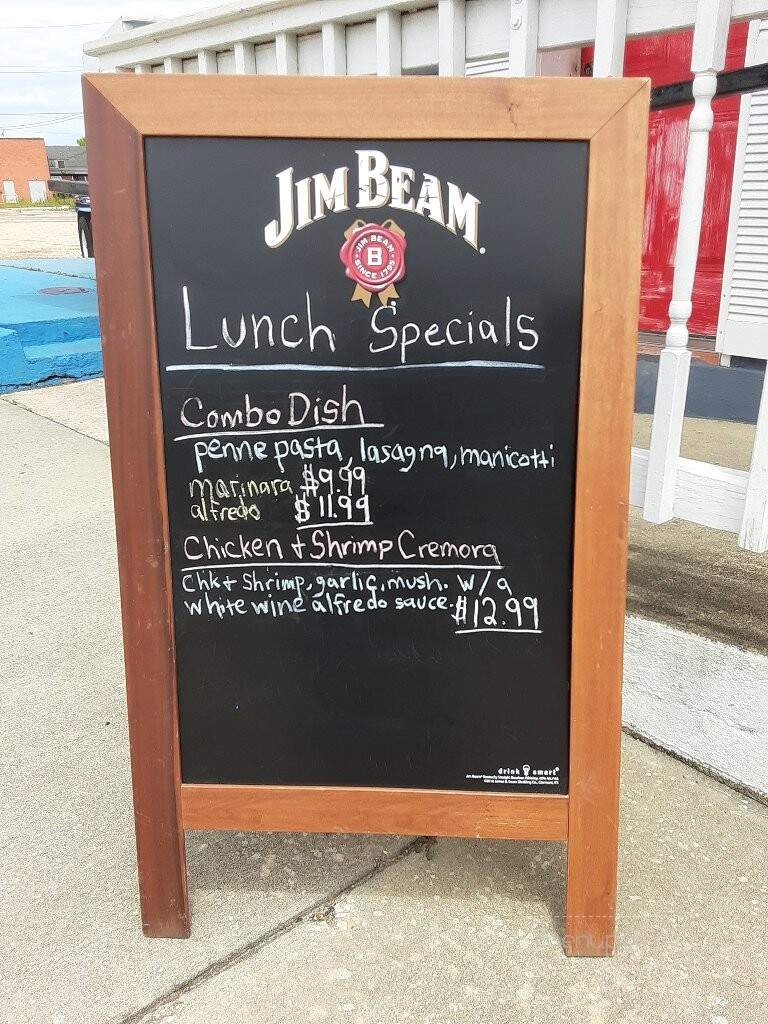 JIM BEAM
JIM BEAM
B
SINCE 1795
Lunch Specials
Combo Dish
penne pasta, lasagna, manicotti
marinara $9.99
alfredo $11.99
Chicken + Shrimp Cremora
Chk + Shrimp, garlic, mush. w/a
white wine alfredo sauce. $12.99
drink smart